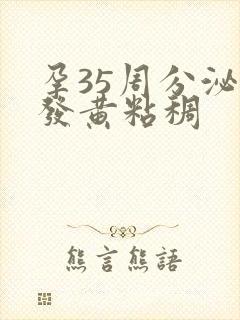 孕35周分泌
發黄粘稠
熊言熊語